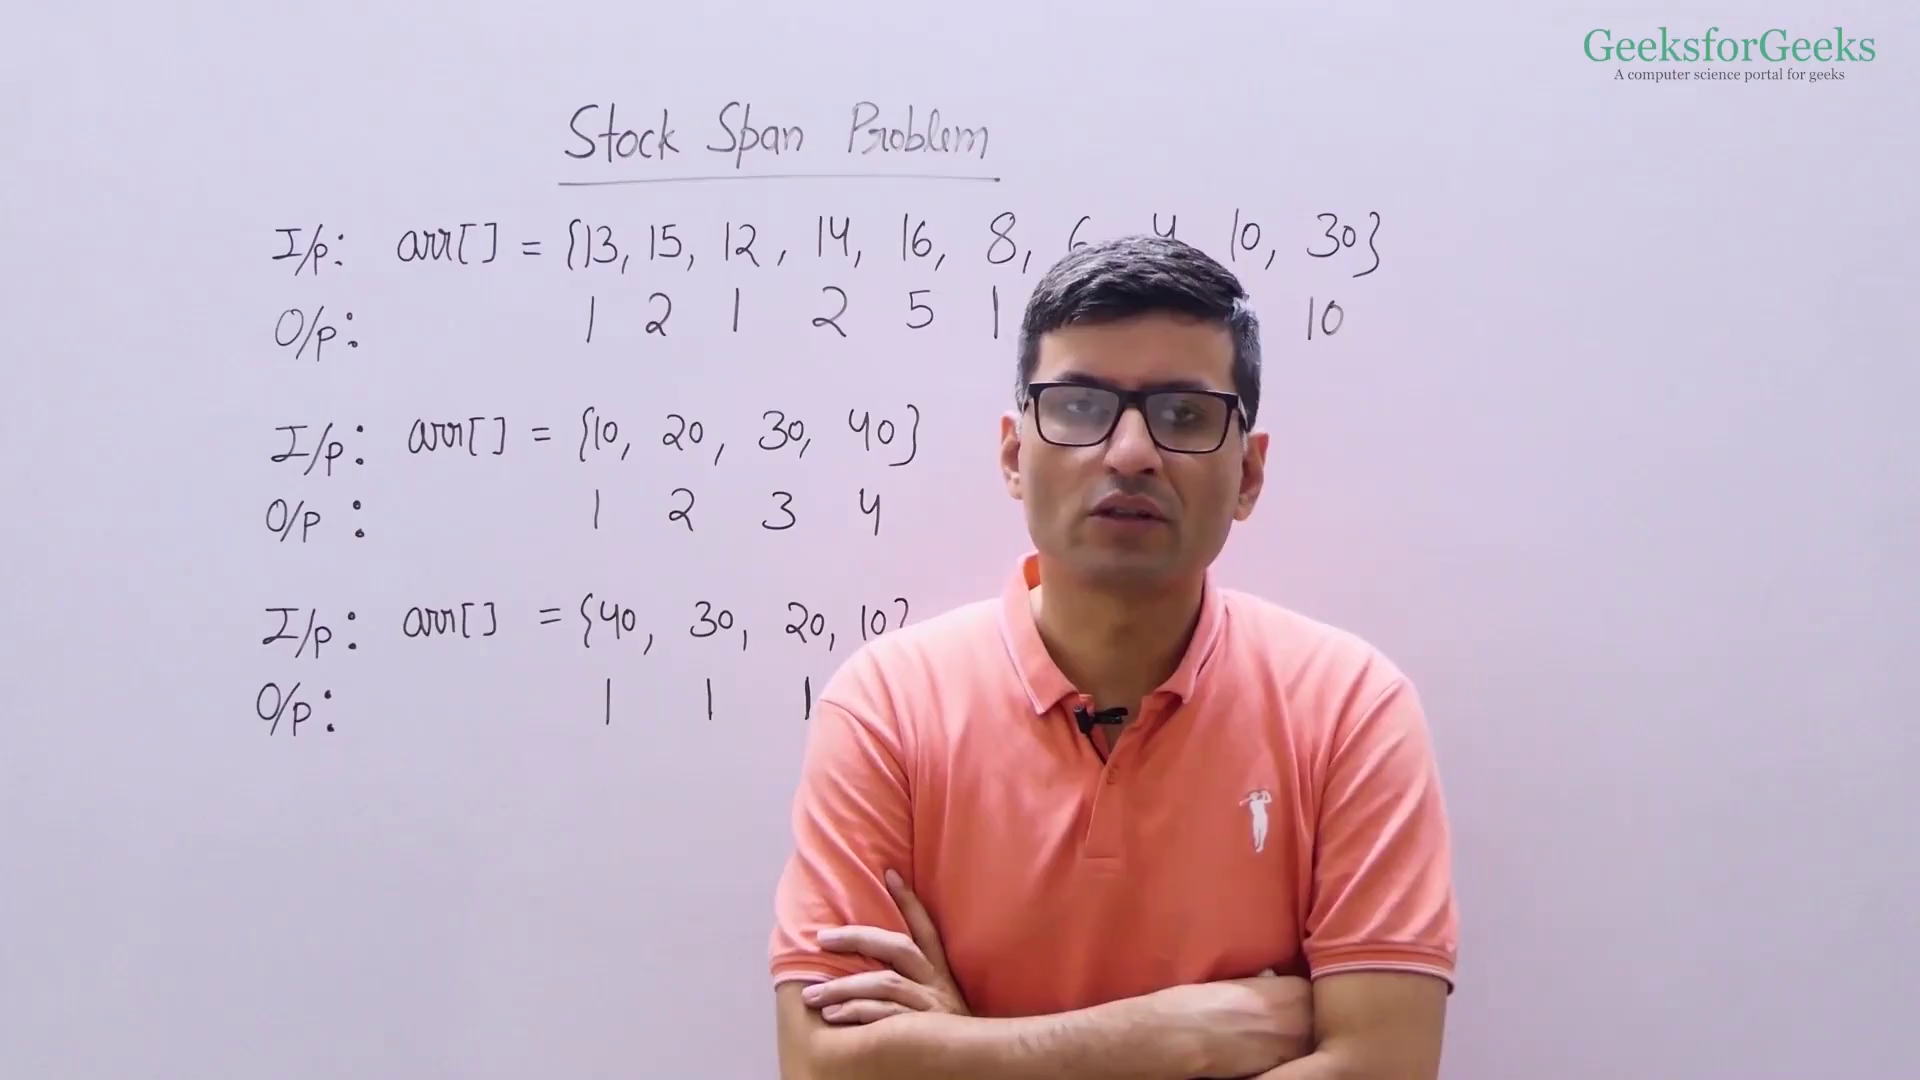 GeeksforGeeks
A computer science portal for geeks
Stock Span Problem
I/p: arr[] = {13, 15, 12, 14, 16, 8, 6 4 10, 30}
O/p: 1 2 1 2 5 1 10
I/p: arr[] = {10, 20, 30, 40}
O/p: 1 2 3 4
I/p: arr[] = {40, 30, 20, 10}
O/p: 1 1 1